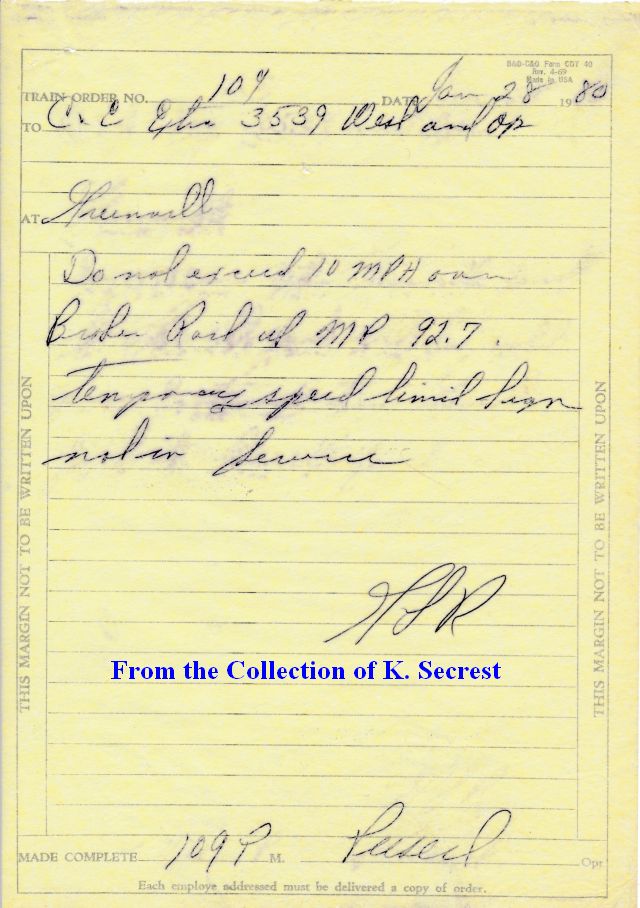 B&O-C&O Form CDT 40
Rev. 4-69
Made in USA
TRAIN ORDER NO. 109 DATE Jan 28 1980
TO C & E Extra 3539 West and Opr
AT
Do not exceed 10 MPH over
Broken Rail at MP 92.7.
temporary speed limit sign
not in service
From the Collection of K. Secrest
MADE COMPLETE 109 P M. Opr
Each employe addressed must be delivered a copy of order.
THIS MARGIN NOT TO BE WRITTEN UPON
THIS MARGIN NOT TO BE WRITTEN UPON